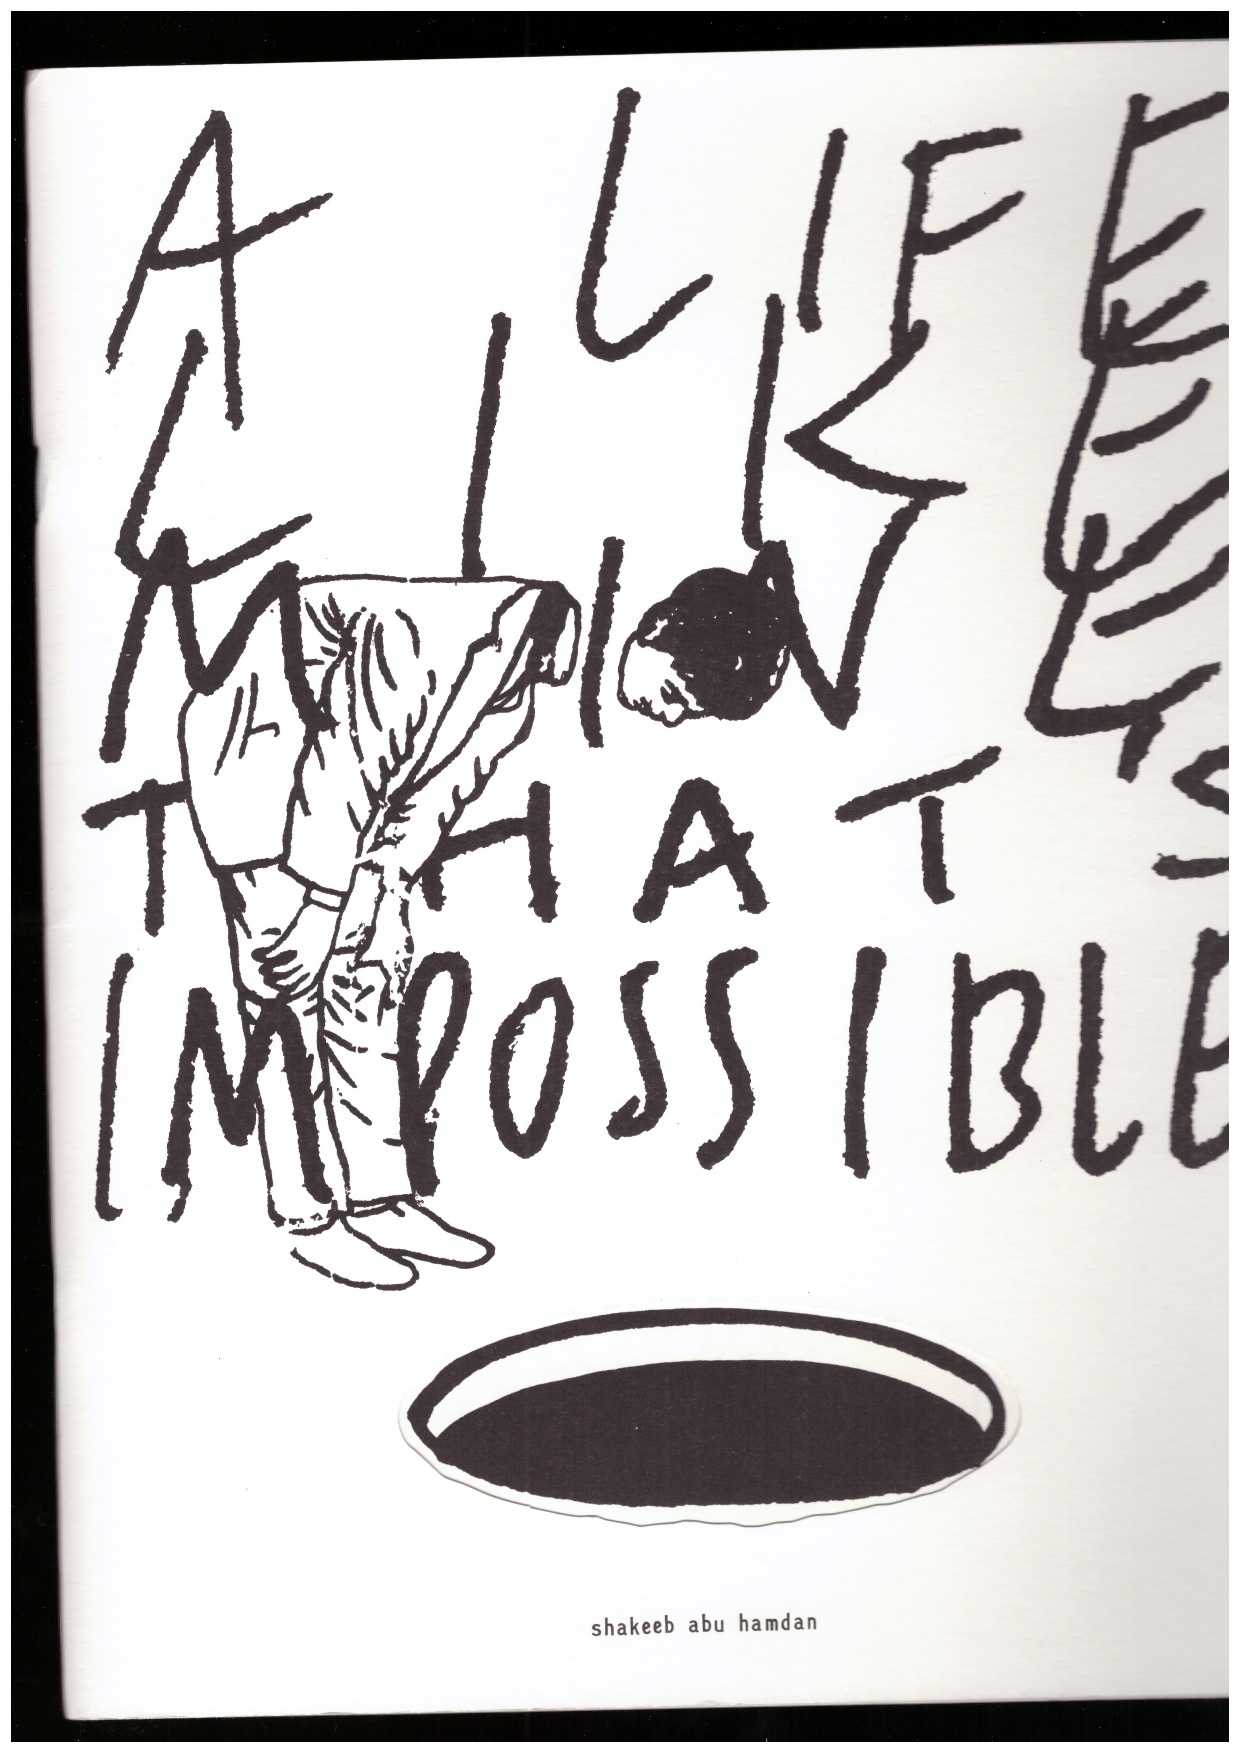 A LIFE
LIKE
MINE
THATS
IMPOSSIBLE
shakeeb abu hamdan